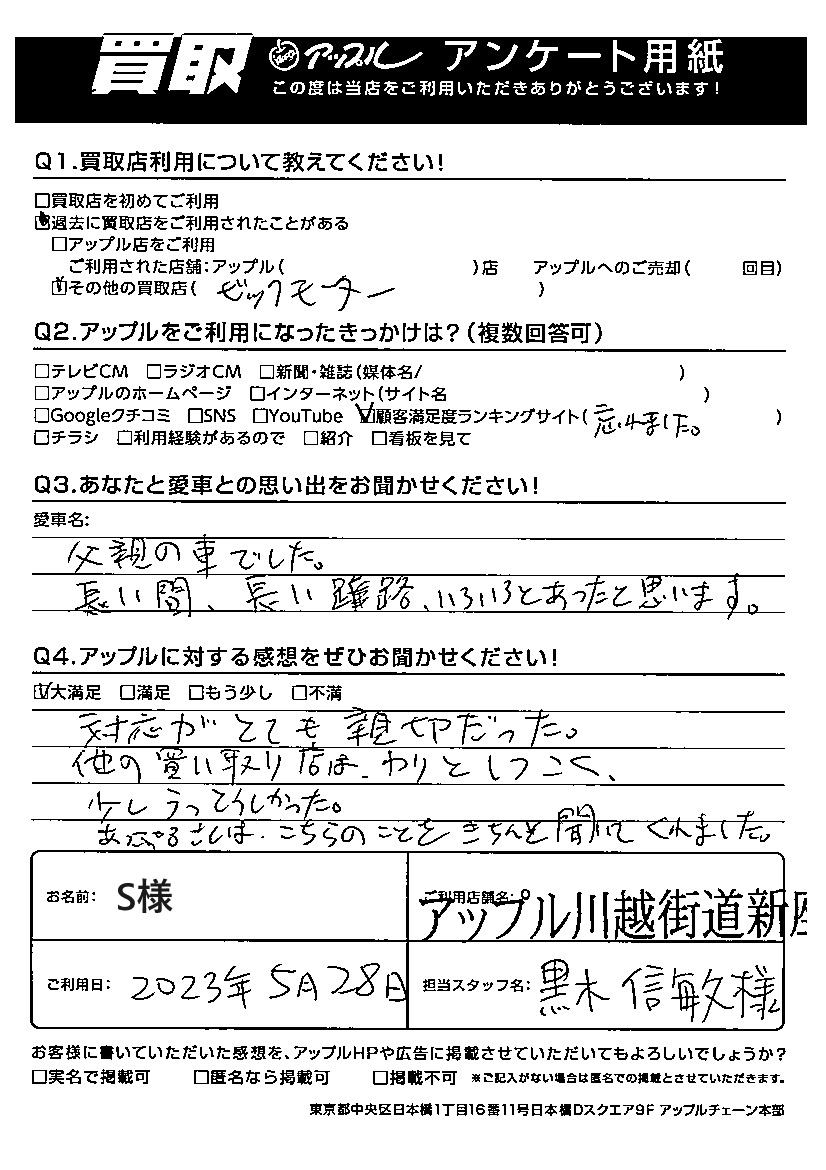 買取 アップル アンケート用紙
この度は当店をご利用いただきありがとうございます!
Q1.買取店利用について教えてください!
□買取店を初めてご利用
☑過去に買取店をご利用されたことがある
□アップル店をご利用
ご利用された店舗:アップル( )店 アップルへのご売却( 回目)
☑その他の買取店( ビックモーター )
Q2.アップルをご利用になったきっかけは?(複数回答可)
□テレビCM □ラジオCM □新聞・雑誌(媒体名/ )
□アップルのホームページ □インターネット(サイト名 )
□Googleクチコミ □SNS □YouTube ☑顧客満足度ランキングサイト( 忘れました。 )
□チラシ □利用経験があるので □紹介 □看板を見て
Q3.あなたと愛車との思い出をお聞かせください!
愛車名:
父親の車でした。
長い間、長い距離、いろいろとあったと思います。
Q4.アップルに対する感想をぜひお聞かせください!
☑大満足 □満足 □もう少し □不満
対応がとても親切だった。
他の買い取り店は、わりとしつこく、
少しうっとうしかった。
あっぷるさんは、こちらのことをきちんと聞いてくれました。
お名前: S様 ご利用店舗名: アップル川越街道新座
ご利用日: 2023年5月28日 担当スタッフ名: 黒木 信敏様
お客様に書いていただいた感想を、アップルHPや広告に掲載させていただいてもよろしいでしょうか?
□実名で掲載可 □匿名なら掲載可 □掲載不可 ※ご記入がない場合は匿名での掲載とさせていただきます。
東京都中央区日本橋1丁目16番11号日本橋Dスクエア9F アップルチェーン本部